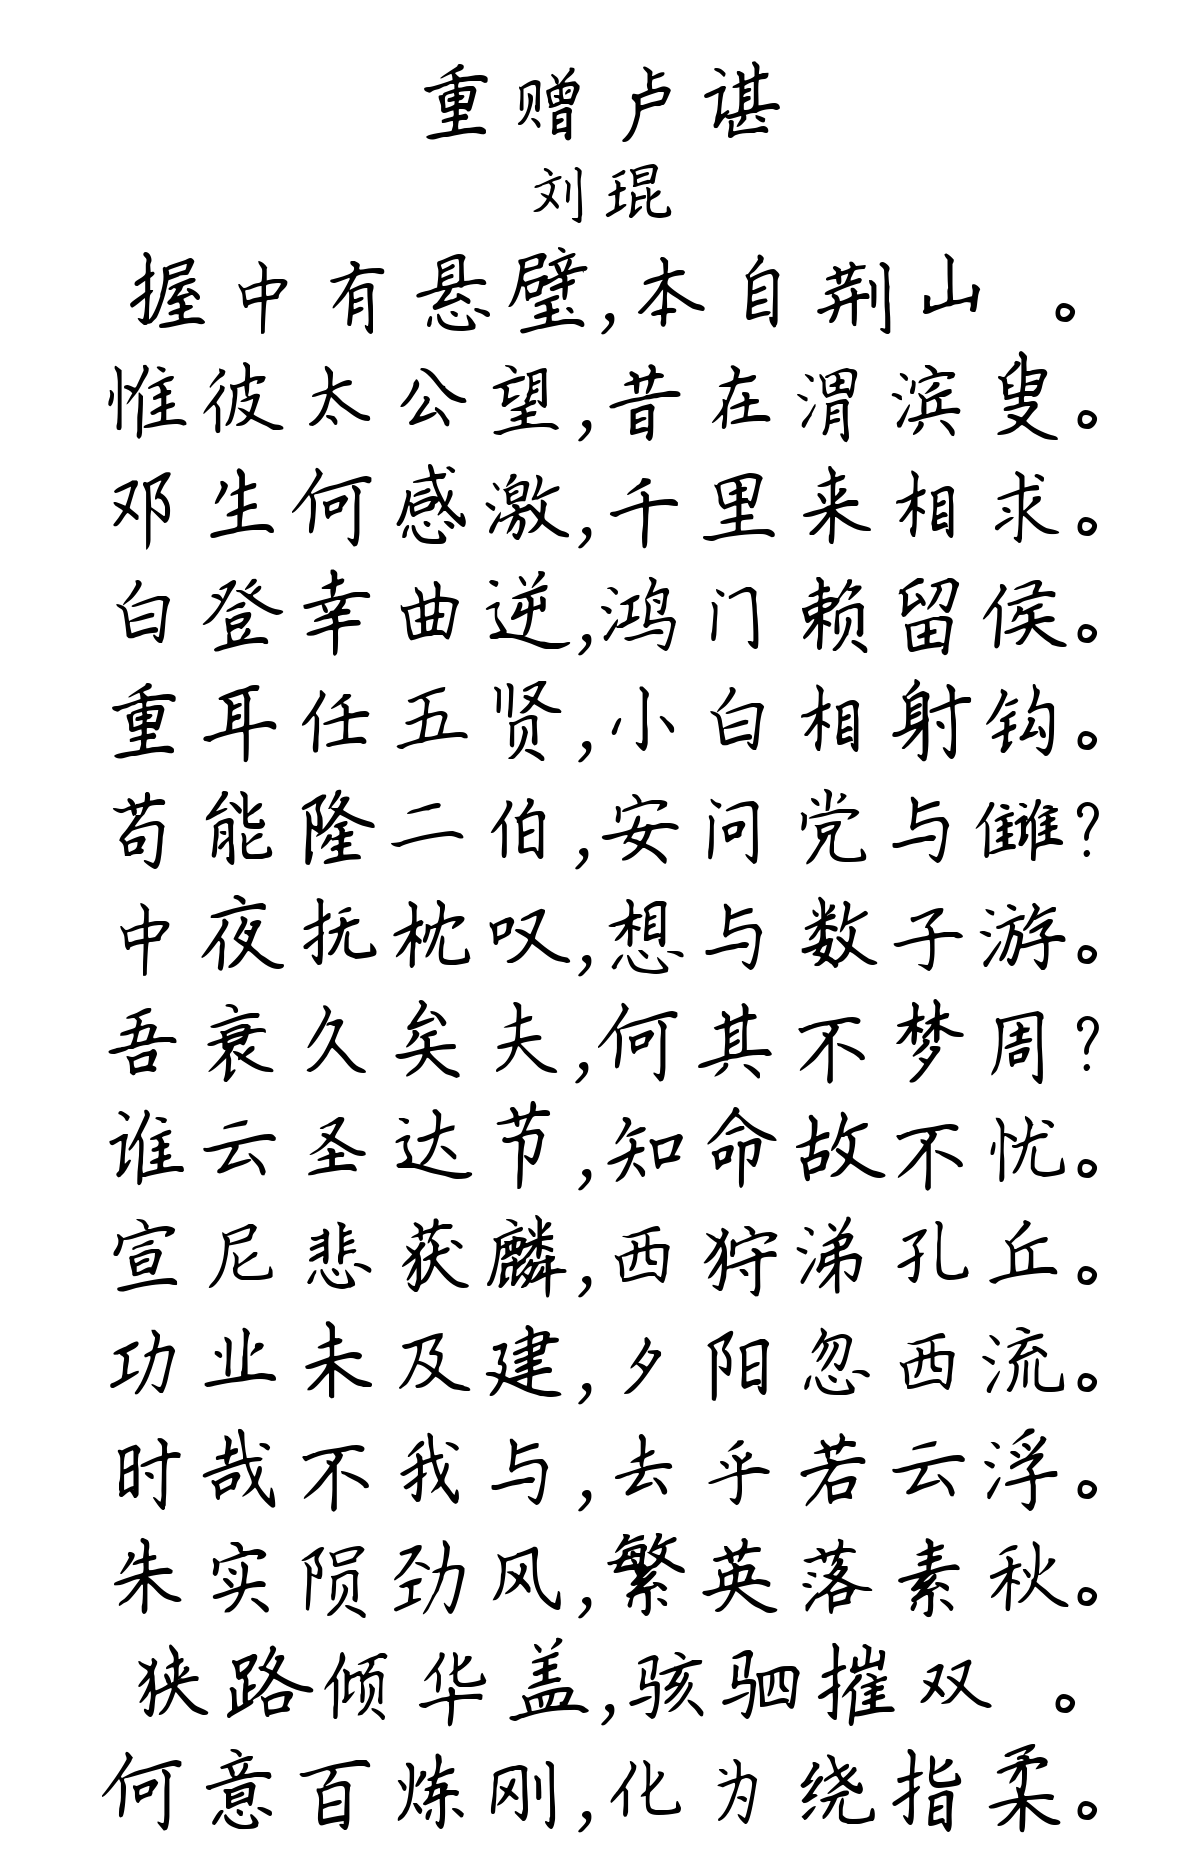 重赠卢谌
刘琨
握中有悬璧,本自荆山 。
惟彼太公望,昔在渭滨叟。
邓生何感激,千里来相求。
白登幸曲逆,鸿门赖留侯。
重耳任五贤,小白相射钩。
苟能隆二伯,安问党与雠?
中夜抚枕叹,想与数子游。
吾衰久矣夫,何其不梦周?
谁云圣达节,知命故不忧。
宣尼悲获麟,西狩涕孔丘。
功业未及建,夕阳忽西流。
时哉不我与,去乎若云浮。
朱实陨劲风,繁英落素秋。
狭路倾华盖,骇驷摧双 。
何意百炼刚,化为绕指柔。